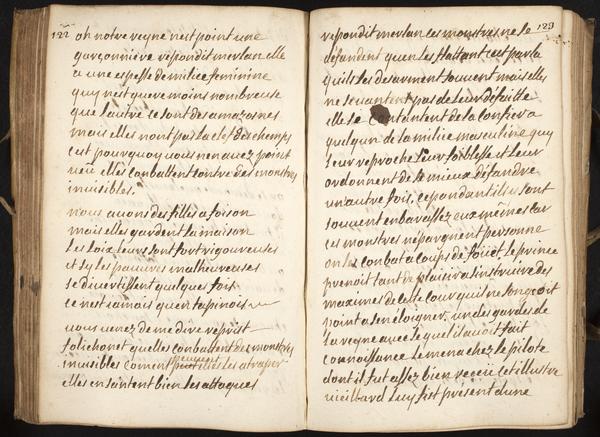 122
oh notre reyne n'est point une
garçonniere repondit merlan elle
a une espesse de milice feminine
quy n'est guere moins nombreuse
que lautre ce sont des amazosnes
mais elles n'ont pas la clef des chemps
c'est pourquoy vous nen avez point
veü elles conbattent contre des monstres
invisibles.
nous avons des filles a foison
mais elles gardent la maison
les loix leurs sont fort rigoureuses
et sy les pauvres malheureuses
se divertissent quelques fois
ce n'est jamais qu'en tapinois
vous venez de me dire reprist
folichonet quelles conbattent des monstres
invisibles coment peuvent elles les atraper
elles en santent bien les attaques
123
repondit merlan ces monstres ne se
defandent qu'en les flattant c'est par la
quils les desarment souvent mais elles
ne se vantent pas de leur defaitte
elle se contantent de la confier a
quelqun de la milice masculine quy
leur reproche leur foiblesse et leur
ordonnent de se mieux defandre
un autre fois, cepandant ils se sont
souvent enbarassez eux mesmes car
ces monstres n'epargnent personne
on les conbat a coups de foüet, le prince
prenoit tant de plaisir a s'instruire des
maximes de cete cour quil ne songeoit
point a sen eloigner, un des gardes de
la reyne avec le quel il avoit fait
connoissance le mena chez le pilote
dont il fut assez bien receü cet illustre
vieillard luy fist present d'une